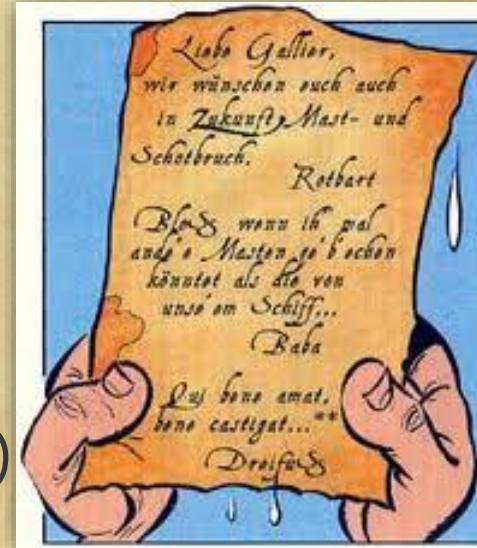 Liebe Gallier,
wir wünschen euch auch
in Zukunft, Mast- und
Schotbruch.
Rotbart
Bloß wenn ih' mal
ande'e Masten ge'b'echen
könntet als die von
unse'em Schiff...
Baba
Qui bene amat,
bene castigat...**
Dreifuß
)